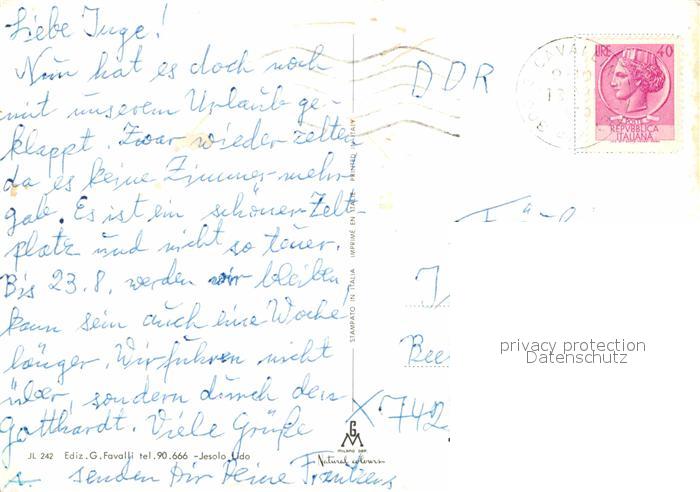 Liebe Inge!
Nun hat es doch noch
mit unserem Urlaub ge-
klappt. Zwar wieder zelten
da es keine Zimmer mehr
gab. Es ist ein schöner Zelt-
platz und nicht so teuer.
Bis 23.8. werden wir bleiben
kann sein auch eine Woche
länger. Wir fuhren nicht
über, sondern durch den
Gotthardt. Viele Grüße
senden Dir Deine
DDR
CAVAL
LIRE 40
POSTE
REPVBBLICA
ITALIANA
Bee
X 742
STAMPATO IN ITALIA IMPRIMÉ EN ITALIE PRINTED IN ITALY
privacy protection
Datenschutz
G
M
MILANO
Natural colours
JL 242 Ediz. G. Favalli tel. 90.666 - Jesolo Lido